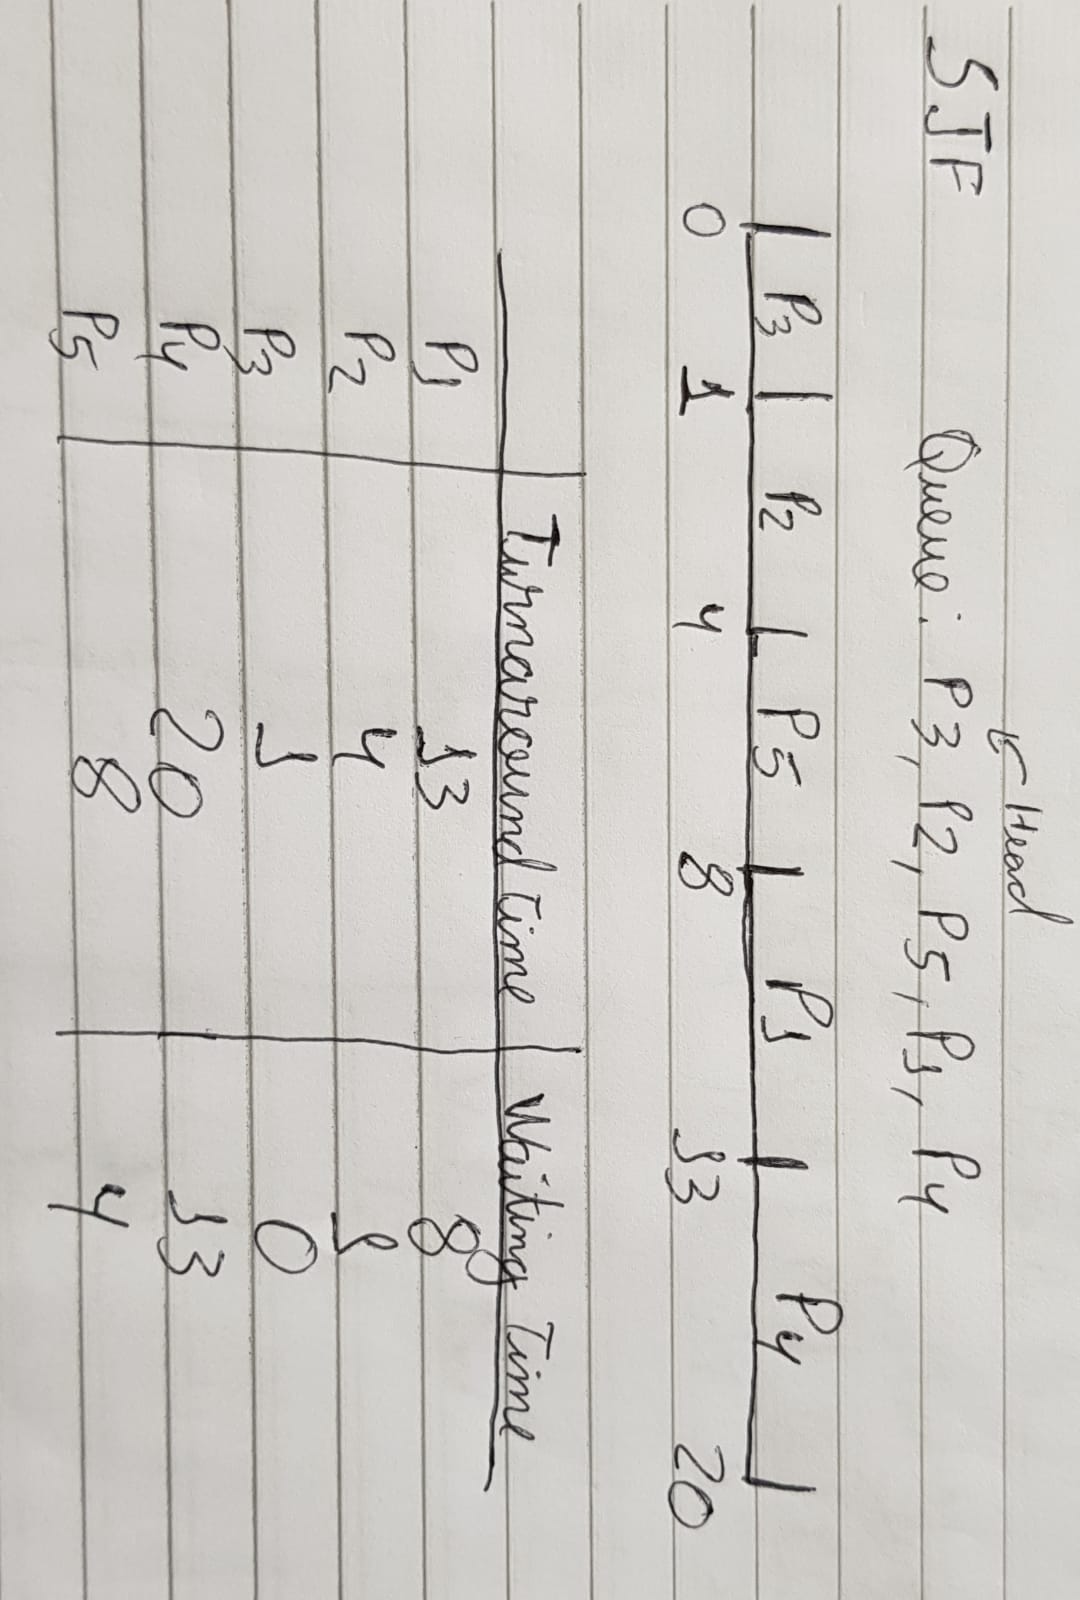 SJF Queue: P3, P2, P5, P1, P4
← Head
P3 P2 P5 P1 P4
0 1 4 8 13 20
Turnaround time Waiting Time
P1 13 8
P2 4 1
P3 1 0
P4 20 13
P5 8 4